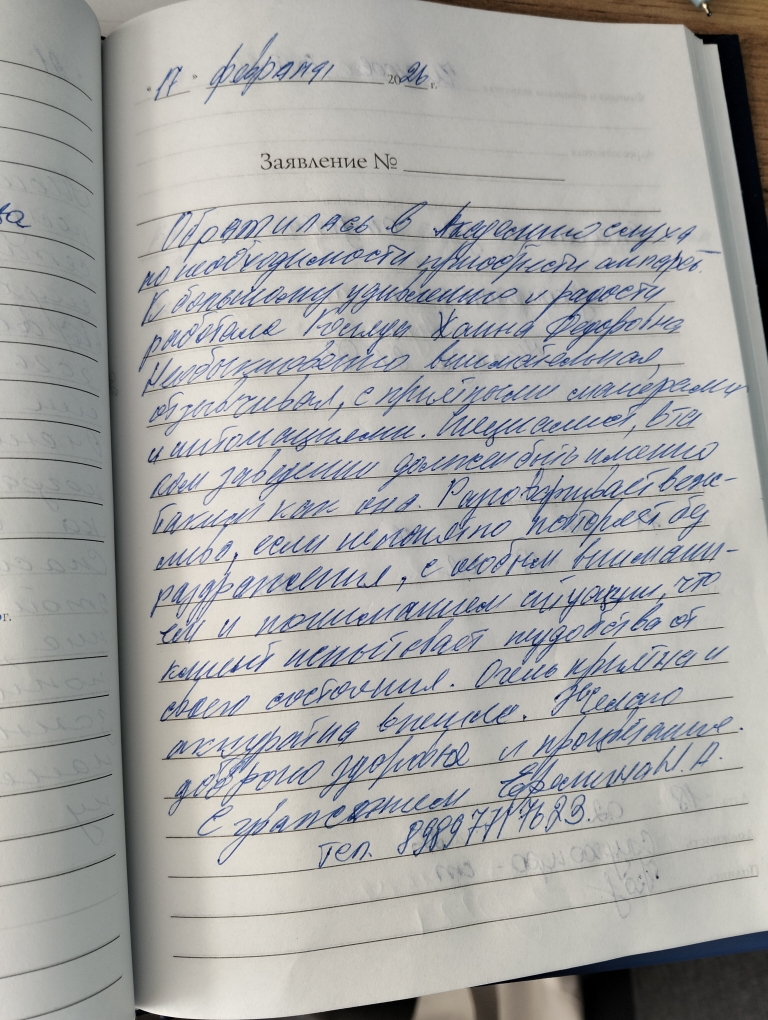 " 17 " февраля 2026 г.
Заявление №
Обратилась в Академию слуха
по необходимости приобрести аппарат.
К большому удивлению и радости
работала Жанна Федоровна
Необыкновенно внимательная,
отзывчивая, с приятными манерами
и интонациями. Специалист, в та
ком заведении должен быть именно
таким как она. Разговаривает веж-
ливо, если непонятно повторяет без
раздражения, с особым внимани-
ем и пониманием ситуации, что
клиент испытывает неудобства от
своего состояния. Очень приятна и
аккуратна внешне. Желаю
доброго здоровья и процветание.
С уважением Н. А.
тел. 89897717623.